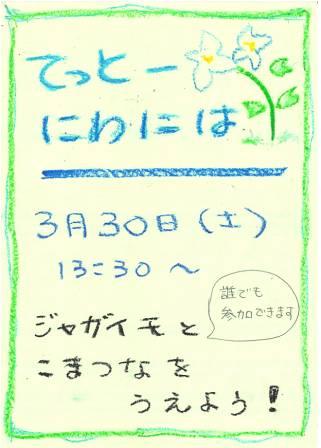 てっとー
にわには
3月30日(土)
13:30〜
誰でも
参加できます
ジャガイモと
こまつなを
うえよう!